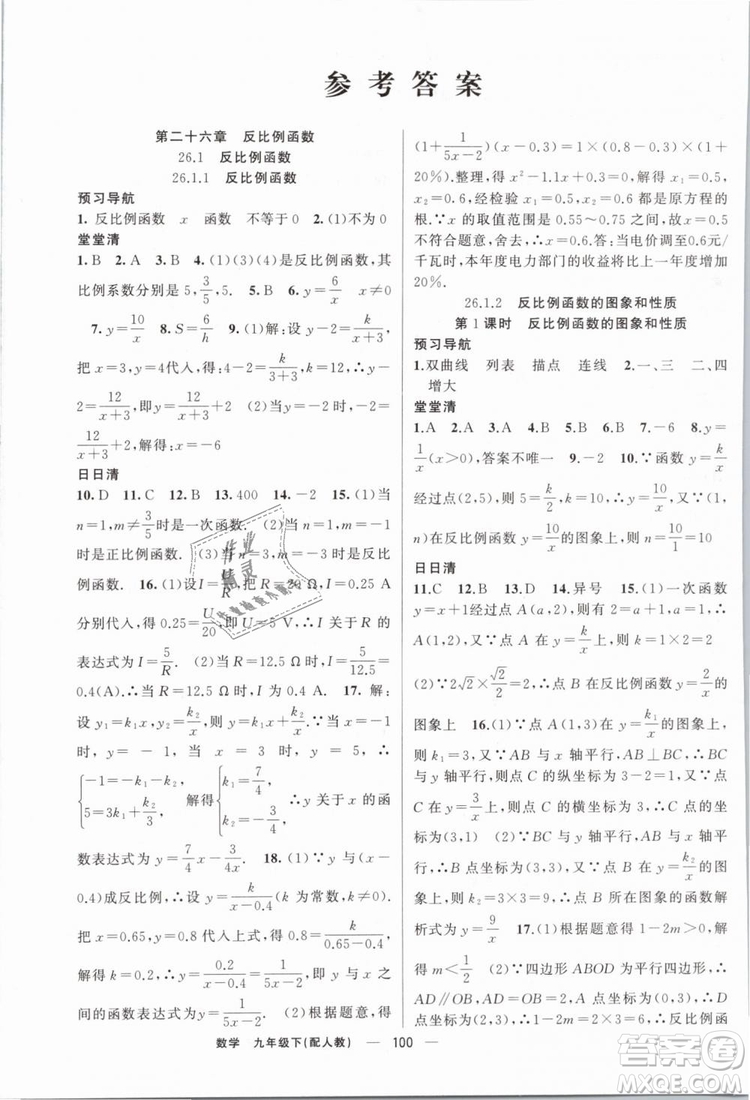 参考答案
第二十六章 反比例函数
26.1 反比例函数
26.1.1 反比例函数
预习导航
1. 反比例函数 x 函数 不等于0 2. (1)不为0
堂堂清
1. B 2. A 3. B 4. (1)(3)(4)是反比例函数,其
比例系数分别是5,3/5,5. 5. B 6. y=6/x x≠0
7. y=10/x 8. S=6/h 9. (1)解:设 y=k/(x+3)+2,
把 x=3,y=4代入,得:4=k/(3+3)+2,∴k=12,∴y
=12/(x+3)+2,即y=12/(x+3)+2 (2)当 y=-2 时,-2=
12/(x+3)+2,解得:x=-6
日日清
10. D 11. C 12. B 13. 400 14. -2 15. (1)当
n=1,m≠3/5时是一次函数. (2)当
时是正比例函数. (3)当
例函数. 16. (1)设I=U/R,把R=20,I=0.25
分别代入,得0.25=U/20,即U=5 V,∴I与R的
表达式为I=5/R. (2)当R=12.5 Ω时,I=5/12.5=
0.4(A)∴当R=12.5 Ω时,I为0.4 A. 17. 解:
设 y₁=k₁x,y₂=k₂/x,则 y=k₁x-k₂/x∵当 x=1
时, y=-1 当 x=3 时, y=5, ∴
{-1=-k₂+k₁ 5=3k₁-k₂/3, 解得{k₁=7/4 k₂=11/4,∴y关于x的函
数表达式为y=7/4x-11/4x. 18. (1)∵y与(x-
0.4)成反比例,∴设 y=k/(x-0.4)(k为常数,k≠0).
把 x=0.65,y=0.8代入上式,得0.8=k/(0.65-0.4),
解得k=0.2,∴y=0.2/(x-0.4)=1/(5x-2),∴y与x之
间的函数表达式为y=1/(5x-2). (2)根据题意,得
(1+1/(5x-2))(x-0.3)=1×(0.8-0.3)×(1+
20%).整理,得x²-1.1x+0.3=0,解得x₁=0.5,
x₂=0.6,经检验x₁=0.5,x₂=0.6都是原方程的
根.∵x的取值范围是0.55~0.75之间,故x=0.5
不符合题意,舍去,∴x=0.6.答:当电价调至0.6元/
千瓦时,本年度电力部门的收益将比上一年度增加
20%.
26.1.2 反比例函数的图象和性质
第1课时 反比例函数的图象和性质
预习导航
1. 双曲线 列表 描点 连线 2. 一、三 二、四
增大
堂堂清
1. A 2. A 3. A 4. C 5. B 6. B 7. -6 8. y=
1/x(x>0),答案不唯一 9. 6 10. ∵函数 y=k/x
经过点(2,5),则5=k/2,∴k=10,则y=10/x,∵点(1,
n)在反比例函数y=10/x的图象上,∴n=10/1=10
日日清
11. C 12. B 13. D 14. 异号 15. (1)一次函数
y=x+1经过点A(a,2),则有a+1=2,则a=1,∴
A(1,2),由点A(1,2)在y=k/x上,∴2=k/1,∴k=2
(2)∵2√2×√2/2=2,∴点B在反比例函数y=2/x的
图象上 16. (1)∵点A(1,3)在反比例函数y=k₁/x的
图象上,∴k₁=1×3=3.∵BC∥x轴,AB⊥BC,∴
AB与y轴平行,则点C的纵坐标为3-2=1,又∵点
C在y=3/x上,∴点C的横坐标为3÷1=3,则点C的
坐标为(3,1) (2)∵BC与x轴平行,AB与y轴平
行,∴点B的坐标为(3,3),∵点B在y=k₂/x的图象
上,∴k₂=3×3=9,∴点B所在的图象的函数解
析式为y=9/x 17. (1)根据题意得1-2m>0,解
得m<1/2 (2)∵四边形ABOD为平行四边形,∴
AD∥OB,AD=OB=2,而A点坐标为(0,3),∴D
点坐标为(2,3),∴1-2m=2×3=6,∴反比例函
数学 九年级下(配人教) — 100 —
作业
精灵
答案卷
MXQE.COM